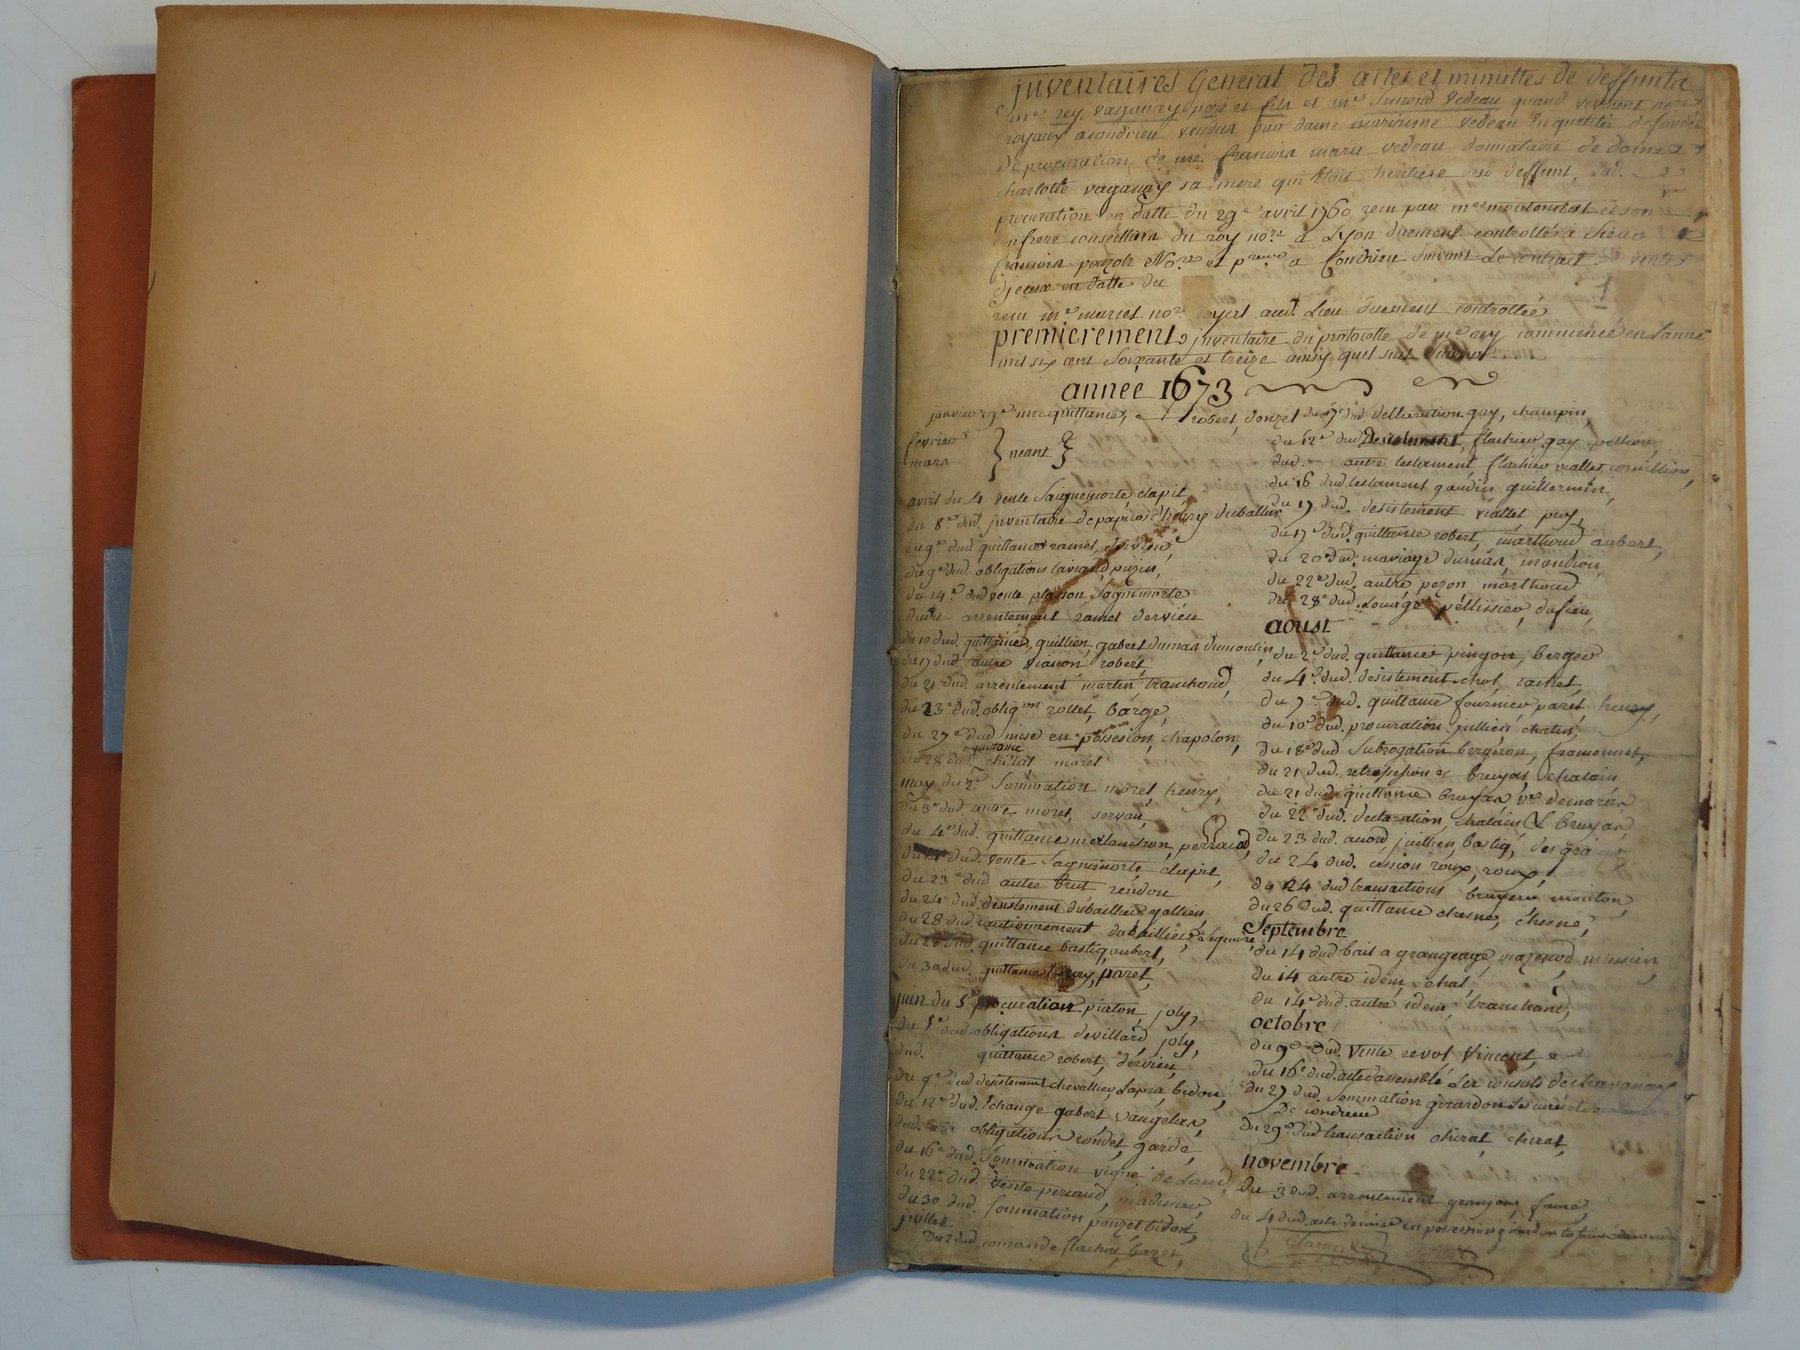 juventaires General des actes et minuttes de deffunts
mes rey, vaganay pere et fils et me Simond Vedeau quand vivant nores
royaux a condrieu vendus par dame marianne vedeau en qualité de fondée
de procuration de mre. francois marie vedeau donnataire de dame
charlotte vaganay sa mere qui étoit héritiere desd deffunt,
procuration en datte du 29e avril 1760 recu par me et son
confrere conseillers du roy nore a Lyon duement controllée a Sieur
francois pouzols Nore et preur a Condrieu Suivant Le contract de ventes
d'jceux en datte du
recu me mariet nore royal aud. Lieu duement controllée
premierement, juventaire du protocolle de me rey commencé en Lanné
mil six cent Soixante et treize ainsy quel suit
année 1673
janvier 9e une quittance, robert, donzel
fevrier
mars } neant
avril du 4 vente Saignemorte, clapit,
du 8e dud. juventaire de papiers
du 9e dud quittance ramel, dervieu,
du 9e dud. obligations lavigne, puzin,
du 14e dud vente platton Sagnimorte
dudit arrentement ramel dervieu
du 10 dud. quittance, guillien, gabert dumas dumoulin,
du 17 dud. autre vianon robert
du 21 dud. arrentement martin, tranchand,
du 23e dud. obligon rollet, barge,
du 27e dud mise en possesion, chapolon,
du 28 dud quittance chillat morel
may du 2e Sommation morel henry,
du 3e dud. autre moret, servan,
du 4e dud. quittance perraud,
dud. vente Sagnimorte clapit,
du 23e dud autre brut rendon
du 24 dud. desistement dubaillier gallien
du 28 dud cautionnement dubaillier,
du 28 dud quittance bastiq, aubert,
du 30 dud. quittance paret,
juin du 5e procuration piaton, joly,
du 5e dud obligations devillard joly,
dud. quittance robert, dervieu,
du 9e dud desistement chevallier, Lapra, bidon,
du 12e dud. Echange gabert vangelas,
dud. obligations rondet, garde,
du 16e dud. Sommation vigne de Laud
du 22e dud. vente perraud,
du 30 dud. Sommation pouzet bidon,
juillet
du 2 dud. comande flachat, baret,
du 7e dud declaration gay, champin,
du 12e dud. Desistement, flachier, gay pellore,
dud. autre testament flachier viallet
du 16 dud. testament gaudin guillermin,
du 17 dud. desistement viallet puy,
du 17e dud. quittance robert, marthoud aubert,
du 20e dud. mariage dumas, mondion,
du 22e dud. autre pezon marthoud
du 28e dud. Louage pellissier, dafieu,
aoust
du 2e dud. quittance pingon, berger
du 4e. dud. desistement chol, rachet,
du 7e dud. quittance fournier paret henry,
du 10e dud. procuration jullien chatin,
du 18e dud Subrogation bergeron, framonnet,
du 21 dud. retrosession bruyas, chatain
du 21 dud. quittance bruyas
du 22e dud. declaration, chatain & bruyas
du 23 dud. acord, juillien, bastiq,
du 24 dud. cession roux, roux,
du 24 dud transactions bruyere mouton,
du 26 dud. quittance chesne, chesne,
Septembre
du 14 dud bail a grangeage, mazenod
du 14 autre idem, chal
du 14e dud. autre idem, tranchand,
octobre
du 9e dud. Vente revol Vincent
du 16e dud. acte d'assemblé Les consuls de chavanay
du 27 dud. Sommation girardon Les curé et
de condrieu
du 29e dud transaction chirat, chirat,
novembre
du 3 dud. arrentement granjon, faure,
du 4 dud. acte de mise en possession girardon